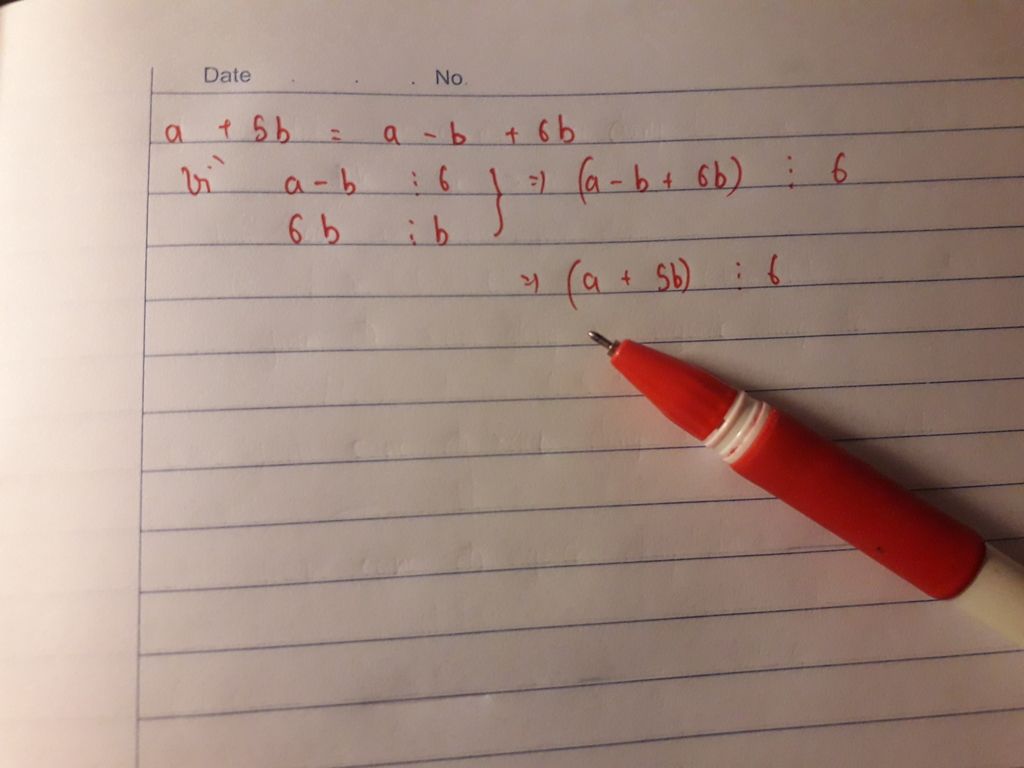 Date . . . No.
a + 5b = a - b + 6b
Vì a - b ⋮ 6 } => (a - b + 6b) ⋮ 6
6b ⋮ b
=> (a + 5b) ⋮ 6